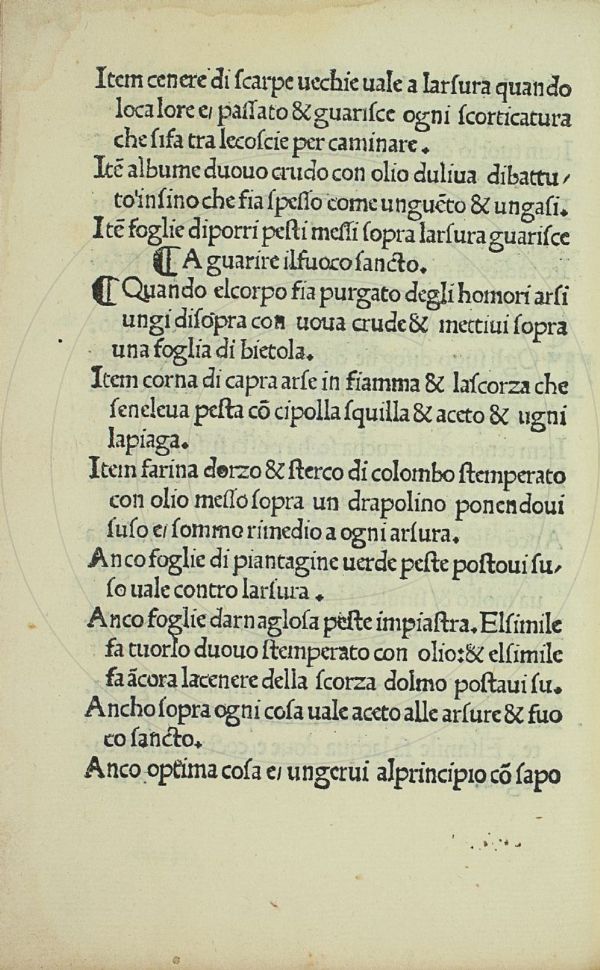 Item cenere di ſcarpe uechie uale a larſura quando
loca lore e/ paſſato & guariſce ogni ſcorticatura
che ſifa tra lecoſcie per caminare.
Itē albume duouo crudo con olio duliua dibattu/
to inſino che ſia ſpeſſo come unguēto & ungaſi.
Itē foglie diporri peſti meſſi ſopra larſura guariſce
¶ A guarire ilfuoco ſancto.
¶ Quando elcorpo ſia purgato degli homori arſi
ungi diſopra con uoua crude & mettiui ſopra
una foglia di bietola.
Item corna di capra arſe in fiamma & laſcorza che
ſeneleua peſta cō cipolla ſquilla & aceto & ugni
lapiaga.
Item farina dorzo & ſterco di colombo ſtemperato
con olio meſſo ſopra un drapolino ponendoui
ſuſo e/ ſommo rimedio a ogni arſura.
Anco foglie di piantagine uerde peſte poſtoui ſu/
ſo uale contro larſura .
Anco foglie darnagloſa peſte impiaſtra. Elſimile
fa tuorlo duouo ſtemperato con olio: & elſimile
fa ācora lacenere della ſcorza dolmo poſtaui ſu.
Ancho ſopra ogni coſa uale aceto alle arſure & fuo
co ſancto.
Anco optima coſa e/ ungerui alprincipio cō ſapo